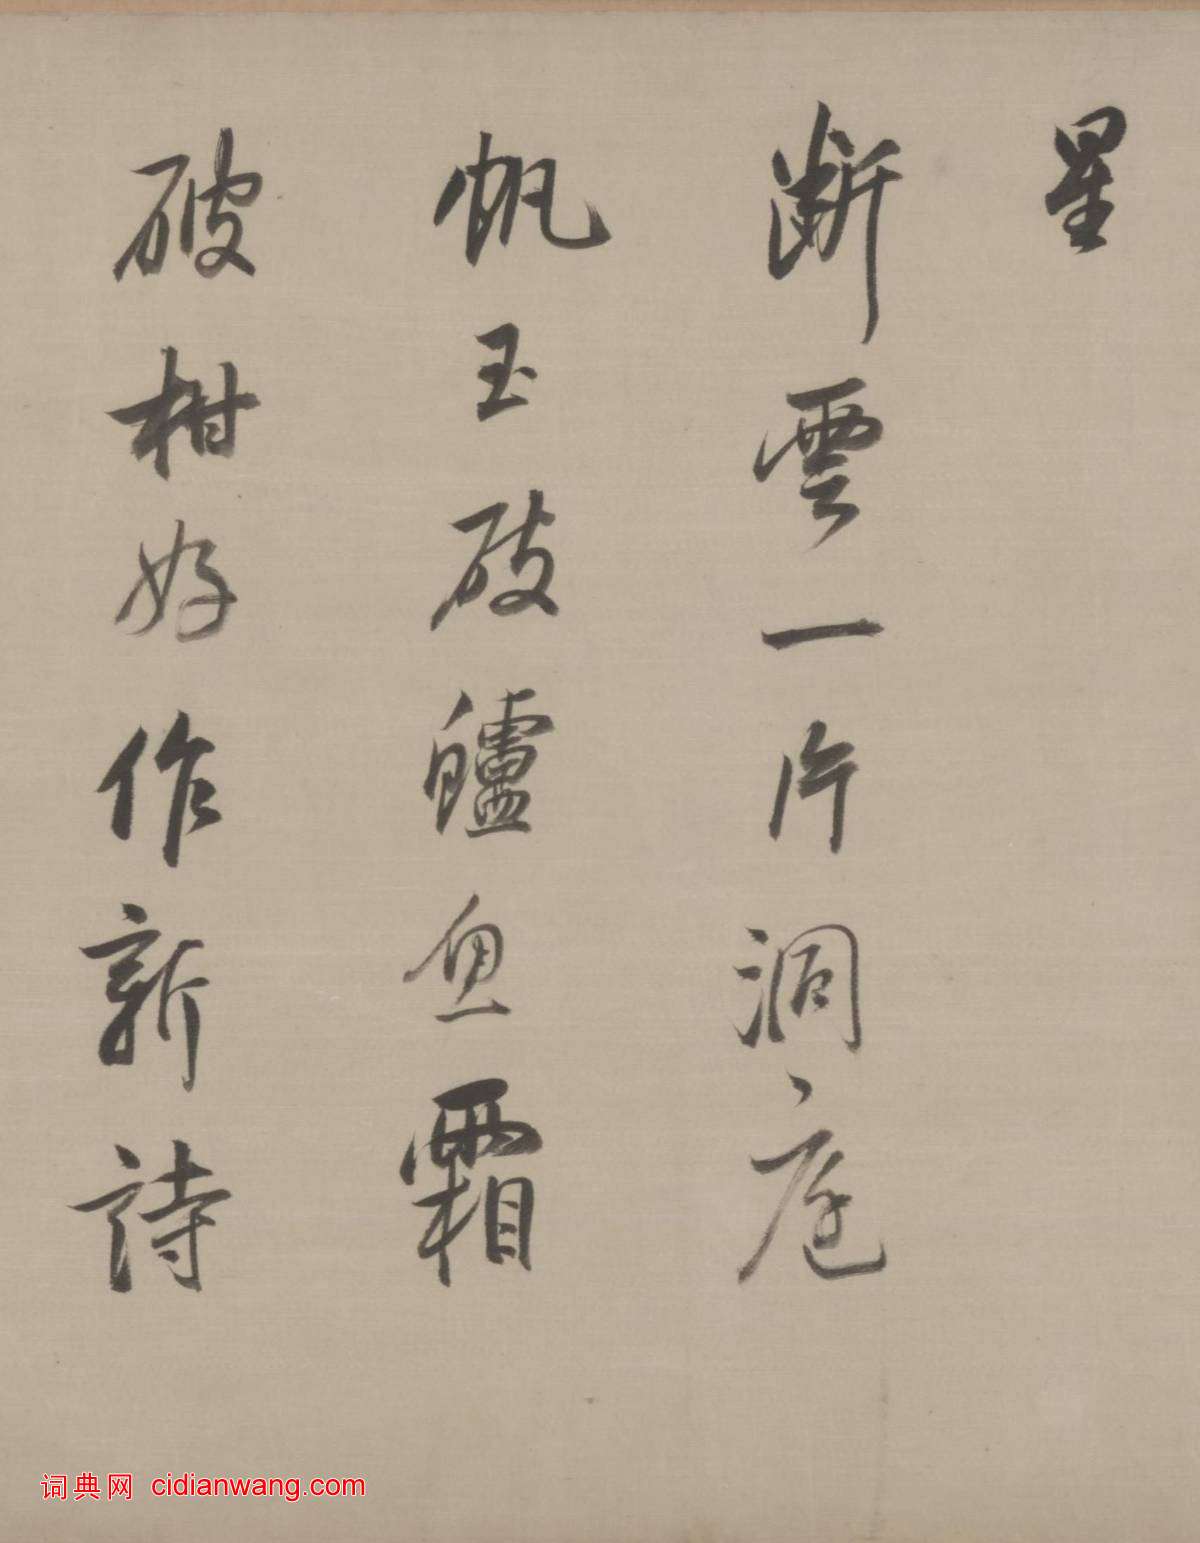 星
断雲一片洞庭
帆玉破鱸魚霜
破柑好作新詩
词典网 cidianwang.com